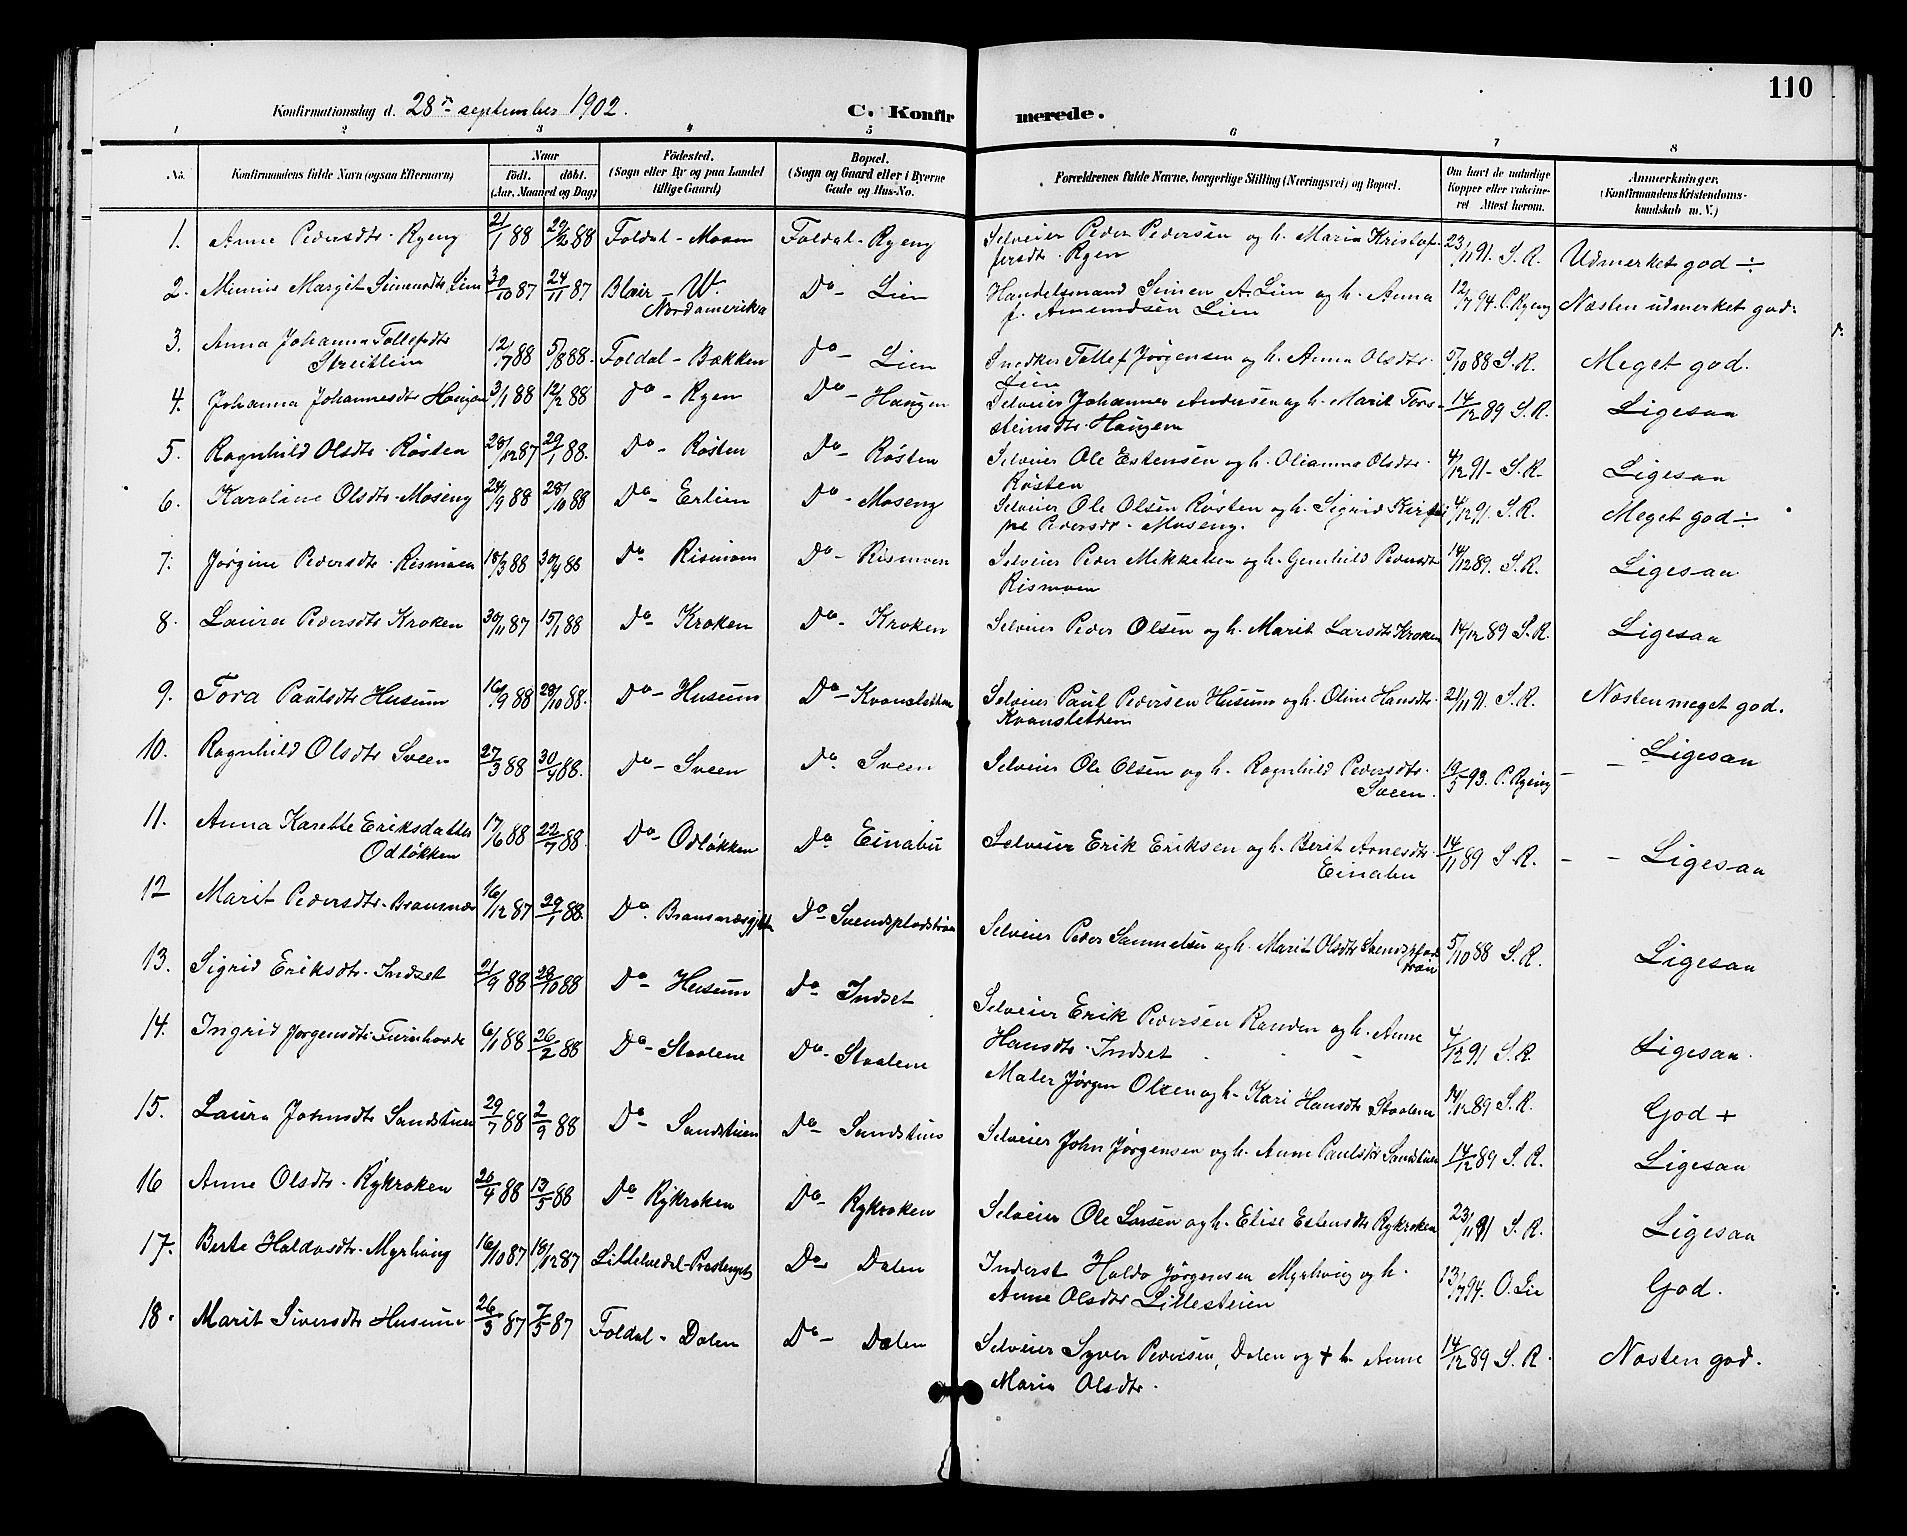 110
Konfirmationsdag d. 28de september 1902. C. Konfirmerede.
1 2 3 4 5 6 7 8
No. Konfirmandens fulde Navn (ogsaa Efternavn) Naar Födt. döbt. (Aar, Maaned og Dag) Födested. (Sogn eller By og paa Landet tillige Gaard) Bopæl. (Sogn og Gaard eller i Byerne Gade og Hus-No. Forældrenes fulde Navne, borgerlige Stilling (Næringsvei) og Bopæl. Om havt de naturlige Kopper eller vakcineret Attest herom. Anmærkninger. (Konfirmandens Kristendomskundskab m. V.)
1. Anne Pedersdtr. Ryeng 21/1 88 26/2 88 Foldal - Moen Foldal - Ryeng Selveier Peder Pedersen og h. Maria Kristof-
fersdtr. Ryen 23/11 91. S. R. Udmerket god ÷
2. Minnie Margit Simensdtr. Lien 30/10 87 24/11 87 Blair - W. Nordamerika Do - Lien Handelsmand Simen A. Lien og h. Anna
f. Amundsen Lien 12/7 94. P. Ryeng Næsten udmerket god.
3. Anna Johanna Tollefsdtr. Streitlien 12/7 88 5/8 88. Foldal - Bækken Do - Lien Snedker Tollef Jørgensen og h. Anna Olsdtr.
Lien 5/10 88 S. R. Meget god.
4. Johanna Johannesdtr Haugen 3/1 88 12/2 88 Do - Ryen Do - Haugen Selveier Johannes Andersen og h. Marit Tor-
steinsdtr. Haugen 14/12 89 S. R. Ligesaa
5. Ragnhild Olsdtr. Røsten 28/12 87 29/1 88. Do - Røsten Do - Røsten Selveier Ole Estensen og h. Olianna Olsdtr.
Røsten 4/12 91 - S. R. Ligesaa
6. Karoline Olsdtr. Moseng 24/9 88 28/10 88 Do - Erlien Do - Moseng Selveier Ole Olsen Røsten og h. Sigrid
Pedersdtr. Moseng. 4/12 91. S. R. Meget god ÷
7. Jørgine Pedersdtr. Rismoen 18/3 88 30/4 88 Do Rismoen Do - Rismoen Selveier Peder Mikkelsen og h. Gunhild Pedersdtr
Rismoen 14/12 89. S. R. Ligesaa
8. Laura Pedersdtr Kroken 30/11 87 15/1 88 Do - Kroken Do - Kroken Selveier Peder Olsen og h. Marit Larsdtr Kroken 14/12 89 S. R. Ligesaa
9. Tora Paulsdtr Husum 16/9 88 28/10 88. Do - Husum Do - Kvansletten Selveier Paul Pedersen Husum og h. Oline Hansdtr.
Kvansletten 21/11 91. S. R. Næsten meget god.
10. Ragnhild Olsdtr Sveen 27/3 88 30/4 88. Do - Sveen Do. Sveen Selveier Ole Olsen og h. Ragnhild Pedersdtr.
Sveen. 19/5 93. P. Ryeng - - Ligesaa
11. Anna Karethe Eriksdatter Odløkken 17/6 88 22/7 88. Do - Odløkken Do Einabu Selveier Erik Eriksen og h. Berit Arnesdtr.
Einabu 14/11 89 S. R. - - Ligesaa
12 Marit Pedersdtr. Bransnæs 16/12 87 29/1 88. Do. Do - Selveier Peder Samuelsen og h. Marit Olsdtr
5/10 88 S. R. Ligesaa
13. Sigrid Eriksdtr. Indset 21/9 88 28/10 88 Do - Husum Do - Indset Selveier Erik Pedersen Randen og h. Anne
Hansdtr. Indset 4/12 91 S. R. Ligesaa.
14. Ingrid Jørgensdtr. Furuhovde 6/1 88 26/2 88 Do - Staalene Do - Staalene Maler Jørgen Olsen og h. Kari Hansdtr Staalene 14/12 89 S. R. God +
15. Laura Johnsdtr Sandstuen 29/7 88 2/9 88 Do - Sandstuen Do - Sandstuen Selveier John Jørgensen og h. Anne Paulsdtr Sandstuen 14/12 89 S. R. Ligesaa
16 Anne Olsdtr. Rykroken 26/4 88 13/5 88 Do Rykroken Do - Rykroken Selveier Ole Larsen og h. Elise Estensdtr Rykroken 23/11 91 S. R. Ligesaa
17. Berte Haldosdtr. Myrhaug 16/10 87 18/12 87 Lilleelvedal - Do - Dalen Inderst Haldo Jørgensen Myrhaug og h.
Anne Olsdtr Lillesteien 13/7 94. O. Lie God.
18. Marit Siversdtr Husum 26/3 87 7/5 87 Foldal - Dalen Do - Dalen Selveier Syver Pedersen, Dalen og + h. Anne
Marie Olsdtr. 14/12 89 S. R. Næsten god.